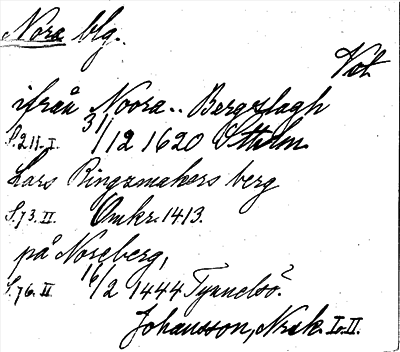 Nora blg.
Vot
ifrån Noora.. Bergzlagh
S.211.I. 31/12 1620 Sthlm.
Lars Ringzmakers berg
S.73.II. Omkr. 1413.
på Noreberg,
S.76.II. 16/2 1444 Tynnelsö?
Johansson, Norask. I-II.